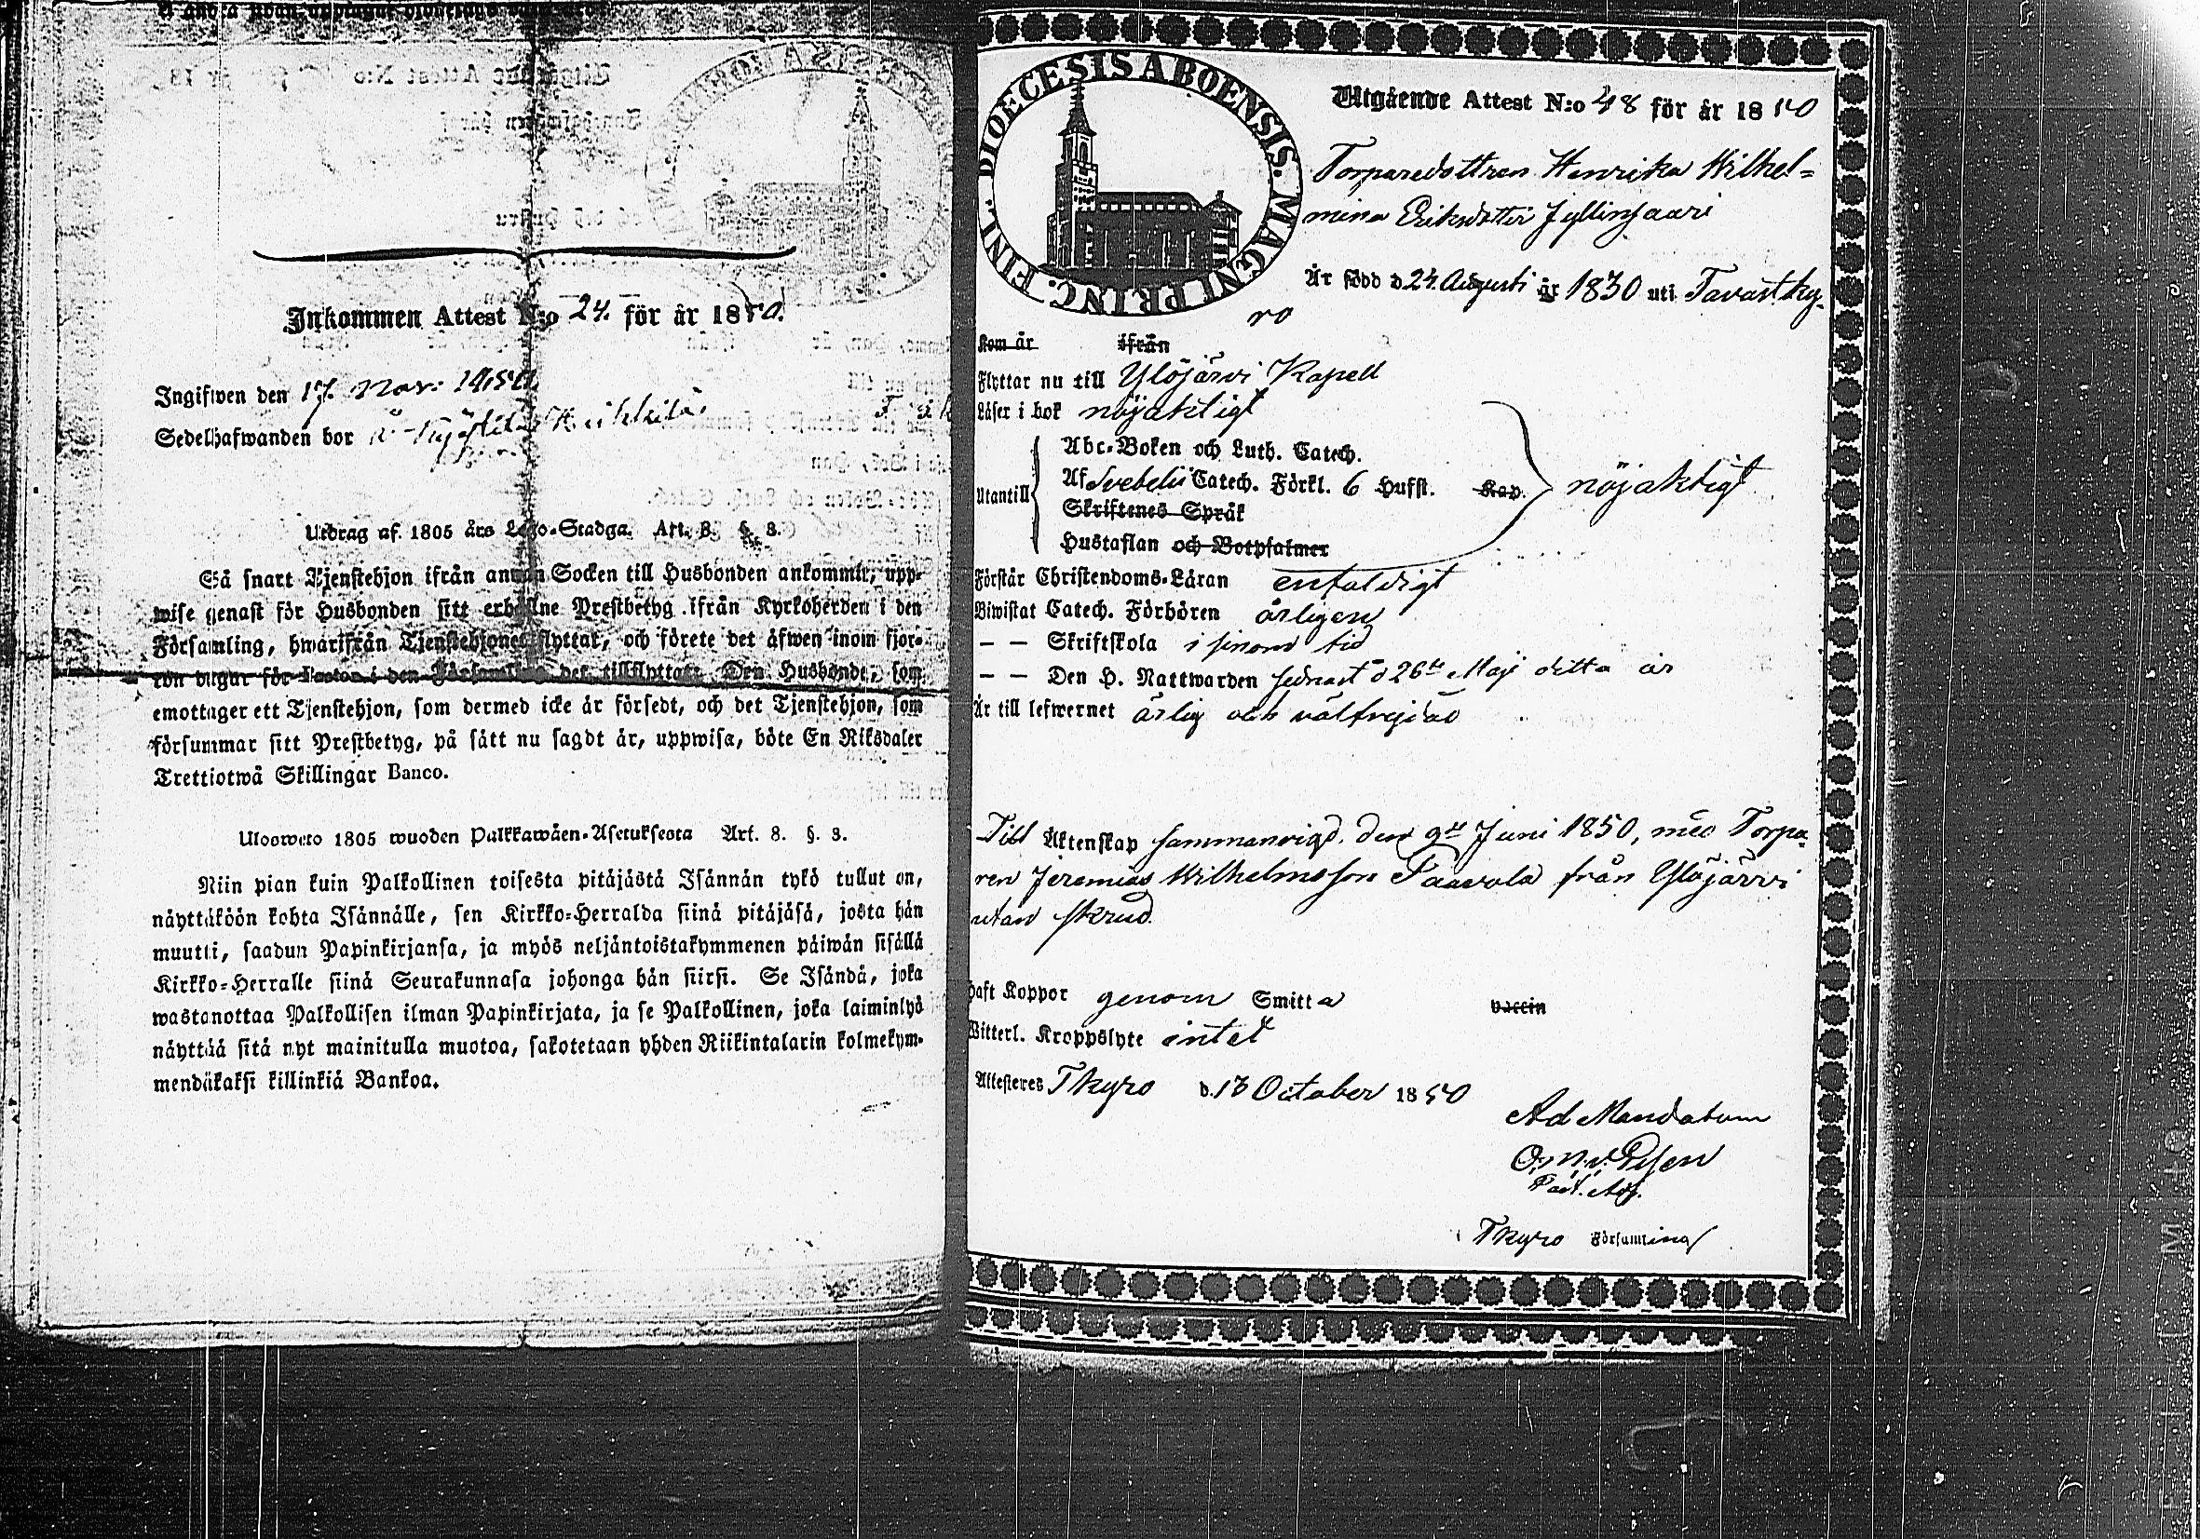 Inkommen Attest N:o 24. för år 1850.
Ingifwen den 17. Nov: 1850
Sedelhafwanden bor
Utdrag af 1805 års Lego-Stadga. Art. 8. §. 3.
Så snart Tjenstehjon ifrån annan Socken till Husbonden ankommit, upp-
wise genast för Husbonden sitt erhållne Prestbetyg ifrån Kyrkoherden i den
Församling, hwarifrån Tjenstehjonet flyttat, och förete det äfwen inom fjor-
ton dagar för Pastor i den Församling det tillflyttat. Den Husbonde, som
emottager ett Tjenstehjon, som dermed icke är försedt, och det Tjenstehjon, som
försummar sitt Prestbetyg, på sätt nu sagdt är, uppwisa, böte En Riksdaler
Trettiotwå Skillingar Banco.
Ulosweto 1805 wuoden Palkkawäen-Asetuksesta Art. 8. §. 3.
Niin pian kuin Palkollinen toisesta pitäjästä Isännän tykö tullut on,
näyttäköön kohta Isännälle, sen Kirkko-Herralda siinä pitäjäsä, josta hän
muutti, saadun Papinkirjansa, ja myös neljäntoistakymmenen päiwän sisällä
Kirkko-Herralle siinä Seurakunnasa johonga hän siirsi. Se Isändä, joka
wastanottaa Palkollisen ilman Papinkirjata, ja se Palkollinen, joka laiminlyö
näyttää sitä nyt mainitulla muotoa, sakotetaan yhden Riikintalarin kolmekym-
mendäkaksi killinkiä Bankoa.
DIOECESIS ABOENSIS. MAGNI PRINC. FINL.
Utgående Attest N:o 48 för år 1850
Torparedottren Henrika Wilhel=
mina Eriksdotter Jyllinsaari
Är född d 24. Augusti år 1830 uti Tavastky-
ro
Kom år ifrån
Flyttar nu till Ylöjärvi Kapell
Läser i bok nöjaktigt
Utantill
Abc-Boken och Luth. Catech.
Af Svebelii Catech. Förkl. 6 Hufst. Kap. nöjaktigt
Skriftenes Språk
Hustaflan och Botpsalmer
Förstår Christendoms-Läran enfaldigt
Biwistat Catech. Förhören årligen
— — Skriftskola i sinom tid
— — Den H. Nattwarden sednast d 26te Maji detta år
Är till lefwernet ärlig och välfrejdad
Till Äktenskap sammanvigd. den 9de Juni 1850, med Torpa-
ren Jeremias Wilhelmsson Paavola från Ylöjärvi
utan skrud.
Haft Koppor genom Smitta vaccin
Witterl. Kroppslyte intet
Attesteres TKyro d. 13 October 1850
Ad Mandatum
Past. Adj.
TKyro Församling